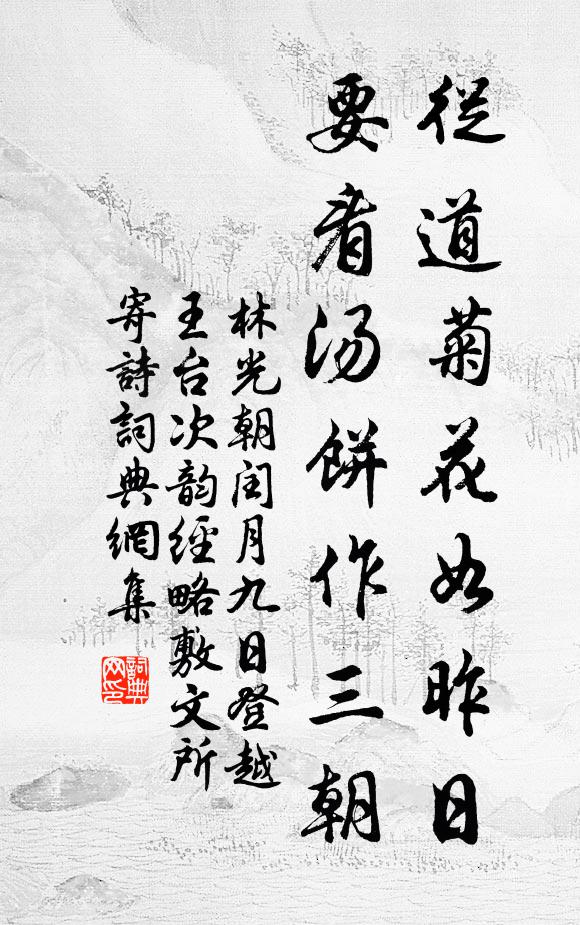 從道菊花如昨日
要看湯餅作三朝
林光朝閏月九日登越
王台次韵經略敷文所
寄詩詞典網集
詞典
网印